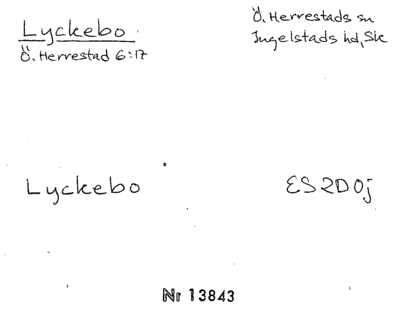 Lyckebo
Ö. Herrestad 6:17
Ö. Herrestads sn
Ingelstads hd, Sk
Lyckebo
ES2D0j
Nr 13843